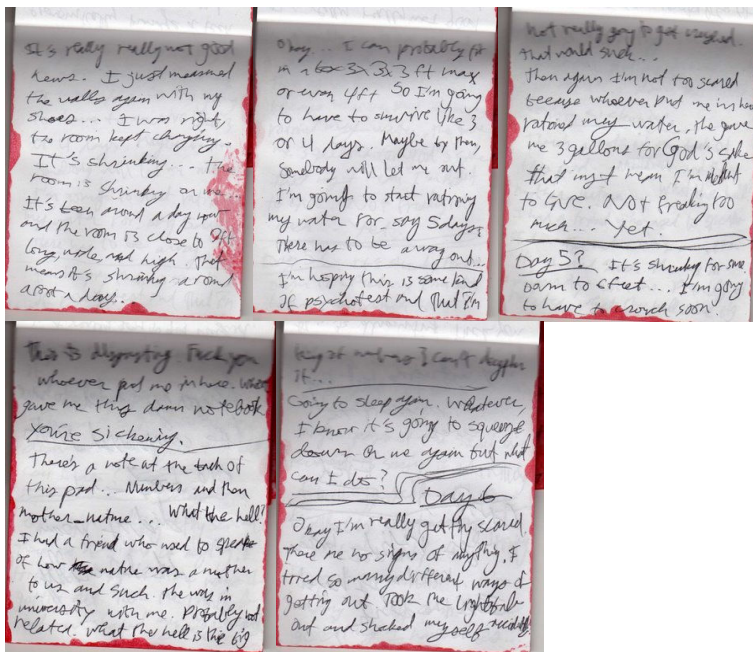 It's really really not good
news. I just measured
the walls again with my
shoes... I was right,
the room kept changing.
It's shrinking... the
room is shrinking on me...
It's been around a day now
and the room is close to 9ft
long, wide, and high. That
means it's shrinking around
a foot a day...
Okay... I can probably fit
in a box 3x3x3 ft max
or even 4ft So I'm going
to have to survive like 3
or 4 days. Maybe by then,
somebody will let me out.
I'm going to start rationing
my water for say 5 days.
There has to be a way out...
I'm hoping this is some kind
of psychotest and that I'm
not really going to get crushed.
That would suck...
Then again I'm not too scared
because whoever put me in here
rationed my water, the gave
me 3 gallons for God's sake
That must mean I'm about
to live. Not freaking too
much... Yet.
Day 5? It's shrunk for sure
down to 6 feet... I'm going
to have to crouch soon.
This is disgusting. Fuck you
whoever put me in here. Who
gave me this damn notebook
You're sickening.
There's a note at the back of
this pad... Numbers and then
mother_nature... What the hell?
I had a friend who used to speak
of how nature was a mother
to us and such. She was in
university with me. Probably not
related. What the hell is this big
string of numbers I can't decypher
it...
Going to sleep again. Whatever,
I know it's going to squeeze
down on me again but what
can I do?
Day 6
Okay I'm really getting scared.
There are no signs of anything. I
tried so many different ways of
getting out. Took the lightbulb
out and shocked myself